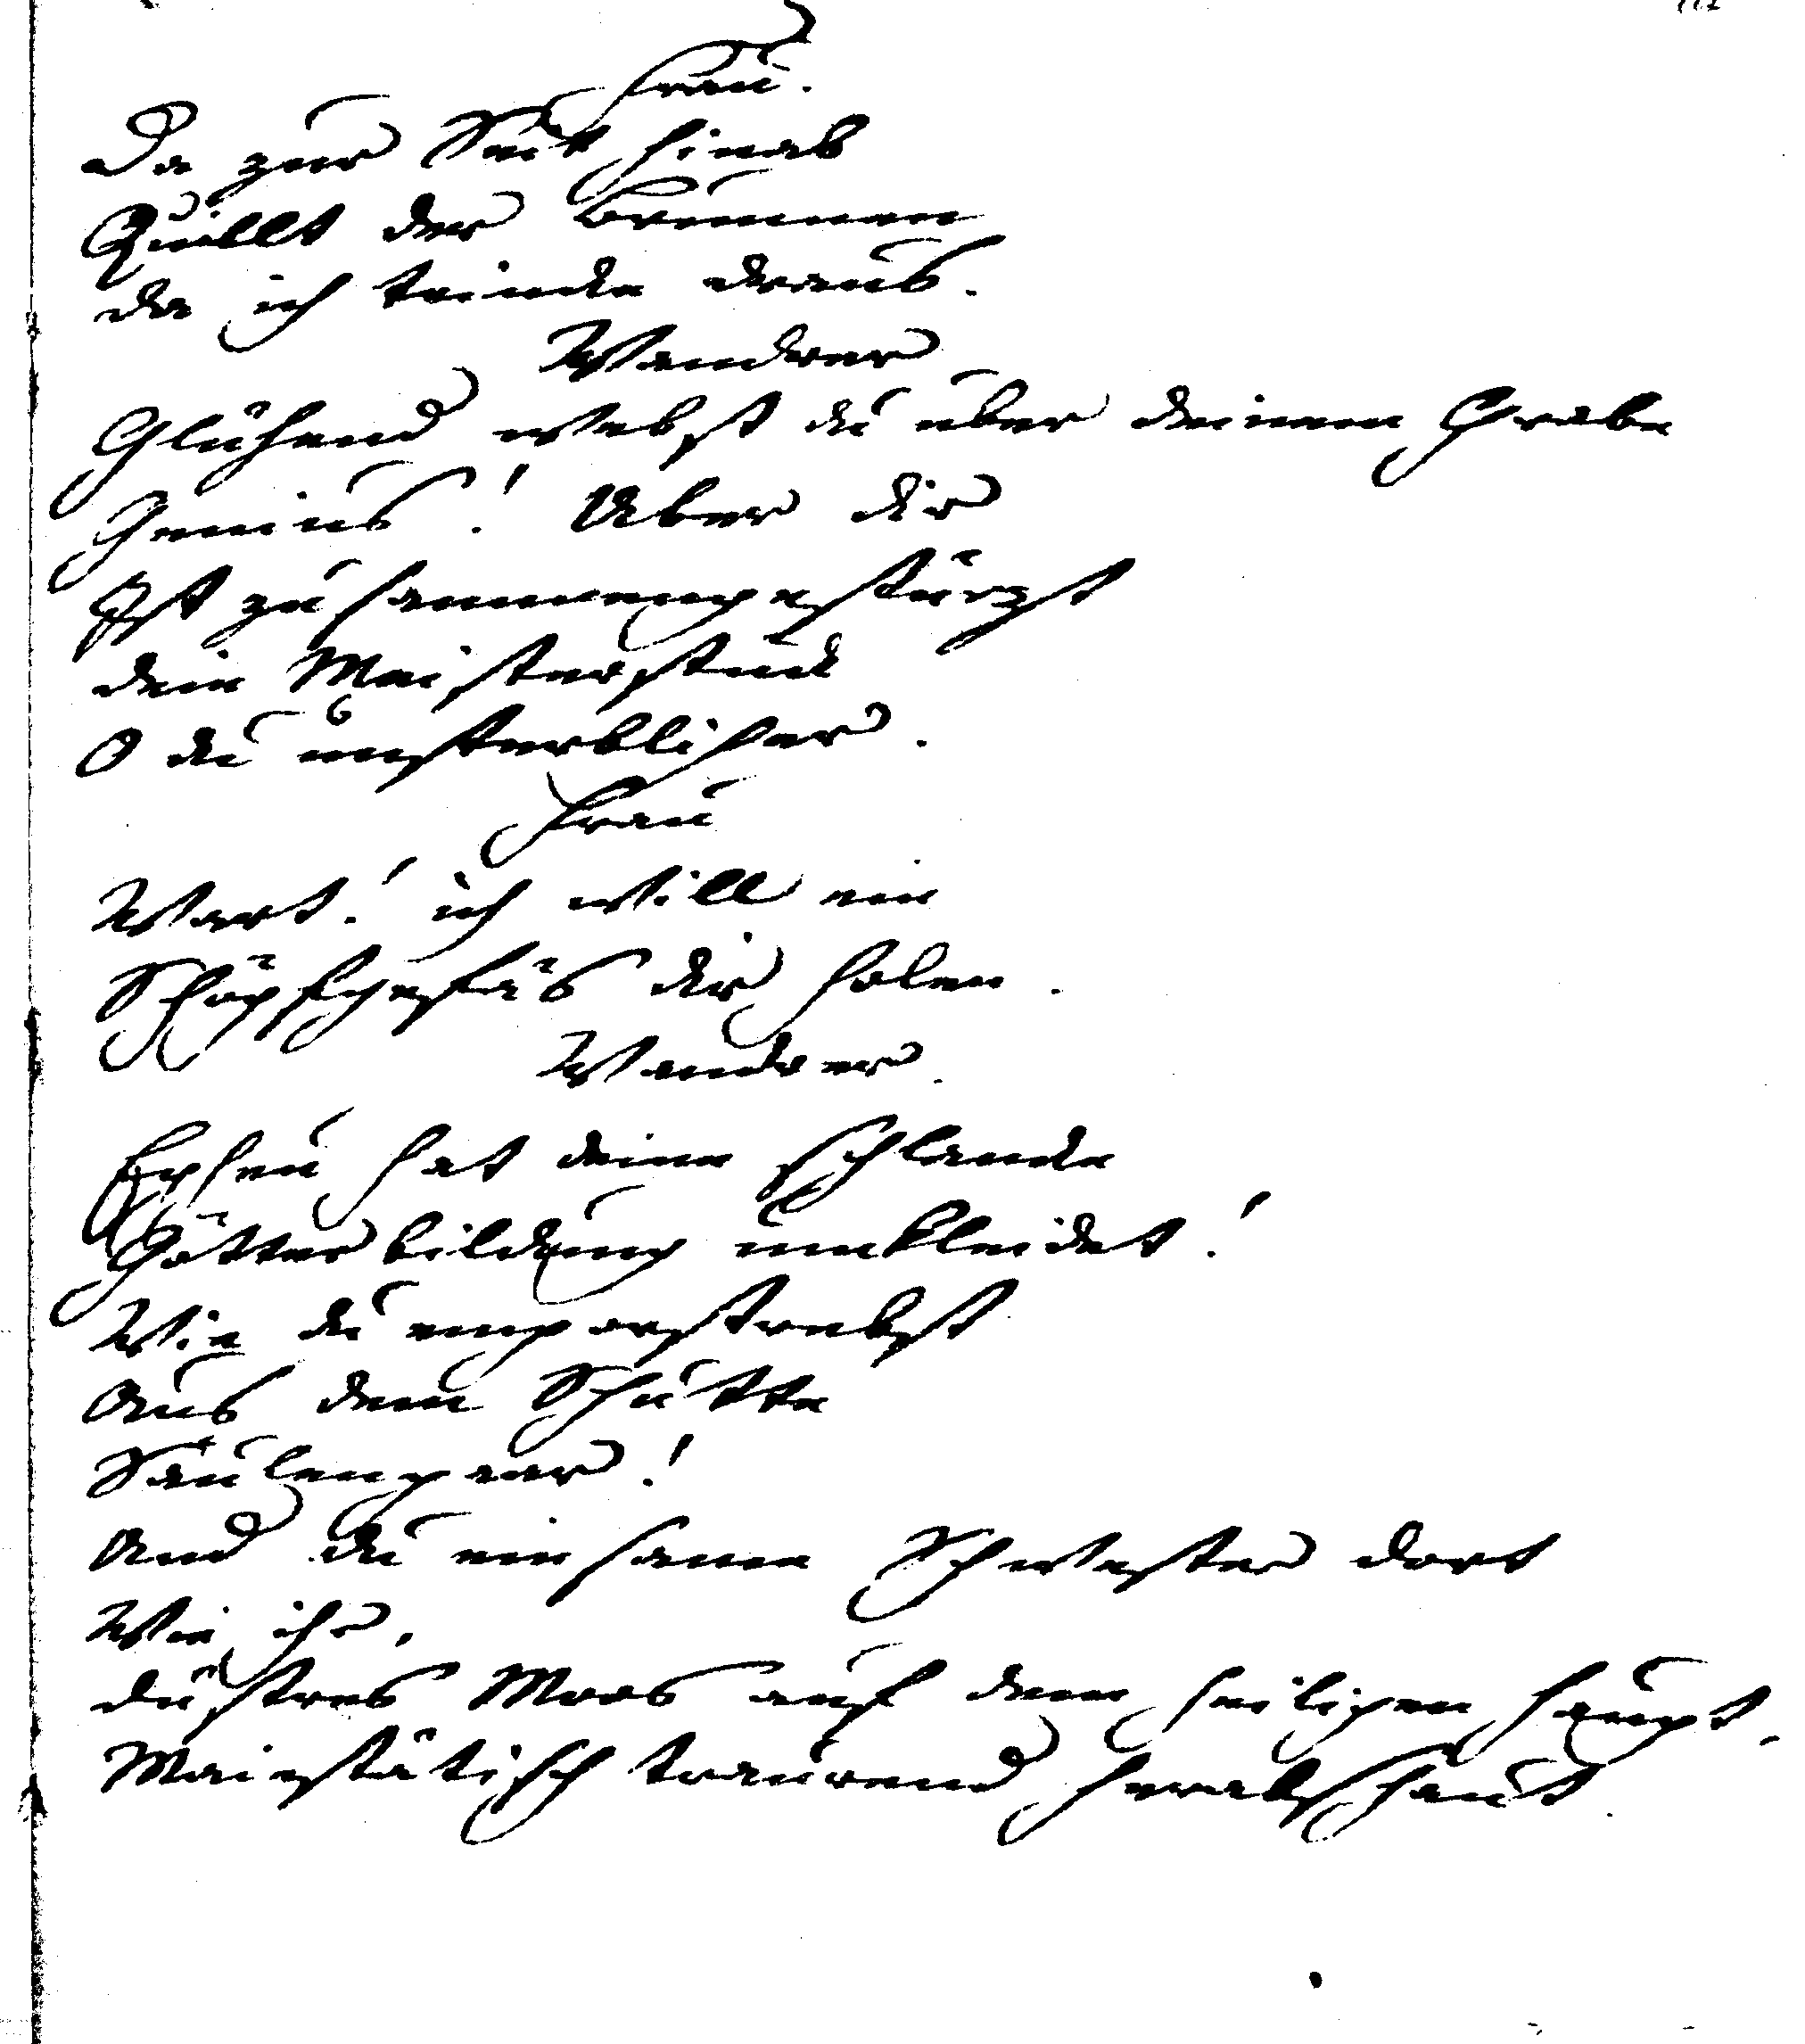 Frau.
Da zur Seite hinab
Quillt der Brunnen
da ich trincke draus.
Wandrer
Glühend webst du über deinem Grabe
Genius! Über dir
Ist zusammengestürzt
dein Meisterstück
O du unsterblicher.
Frau
Wart! ich will ein
Schöpfgefäs dir holen.
Wandrer.
Epheu hat deine schlancke
Götterbildung umkleidet!
Wie du emporstrebst
Aus dem Schutte
Säulenpaar!
Und du einsame Schwester dort
Wie ihr,
düstres Moos auf dem heiligen Haupt,
Maiestätisch traurend herabschaut